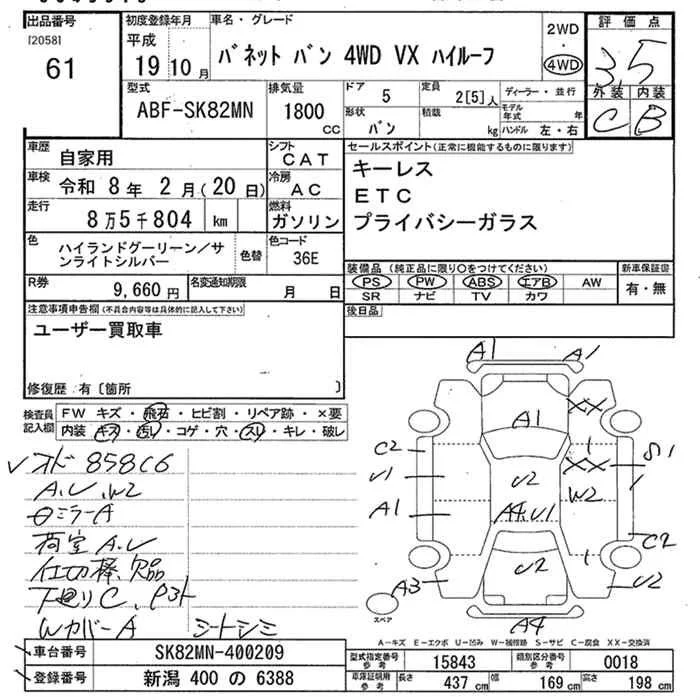 出品番号 初度登録年月 車名・グレード 2WD・4WD 評価点
[2058] 61 平成 19 10月 バネット バン 4WD VX ハイルーフ 3.5
型式 排気量 ドア 5 定員 2[5]人 ディーラー・並行 外装 内装
ABF-SK82MN 1800 CC 形状 バン 積載 kg モデル年式 年 ハンドル 左・右 C B
車歴 自家用 シフト CAT セールスポイント(正常に機能するものに限ります)
車検 令和 8年 2月(20日) 冷房 AC キーレス
走行 8万5千804 km 燃料 ガソリン ETC
プライバシーガラス
色 ハイランドグーリーン/サンライトシルバー 色替 色コード 36E
装備品(純正品に限り○をつけてください) 新車保証書
PS PW ABS エアB AW 有・無
SR ナビ TV カワ
R券 9,660円 名変通知期限 月 日
後日品
注意事項申告欄(不具合内容等は具体的に記入して下さい)
ユーザー買取車
修復歴 有〔箇所 〕
検査員記入欄 FW キズ・飛石・ヒビ割・リペア跡・×要
内装 キズ・汚レ・コゲ・穴・スリ・キレ・破レ
A1 A1
XX
A1
C2 1 S1
U1 XX
U2 1
A1 W2
A4.U1
C2
U2 1
A3 U2
A4
スペア
オド 85806
A.U.W2
ミラーA
荷室A.U
仕切棒欠品
下廻りC、Pヌト
WカバーA シートシミ
A-キズ E-エクボ U-凹み W-補修跡 S-サビ C-腐食 XX-交換済
車台番号 SK82MN-400209
型式指定番号 参考 15843 類別区分番号 参考 0018
登録番号 新潟 400 の 6388
車庫証明用 参考 長さ 437 cm 幅 169 cm 高さ 198 cm